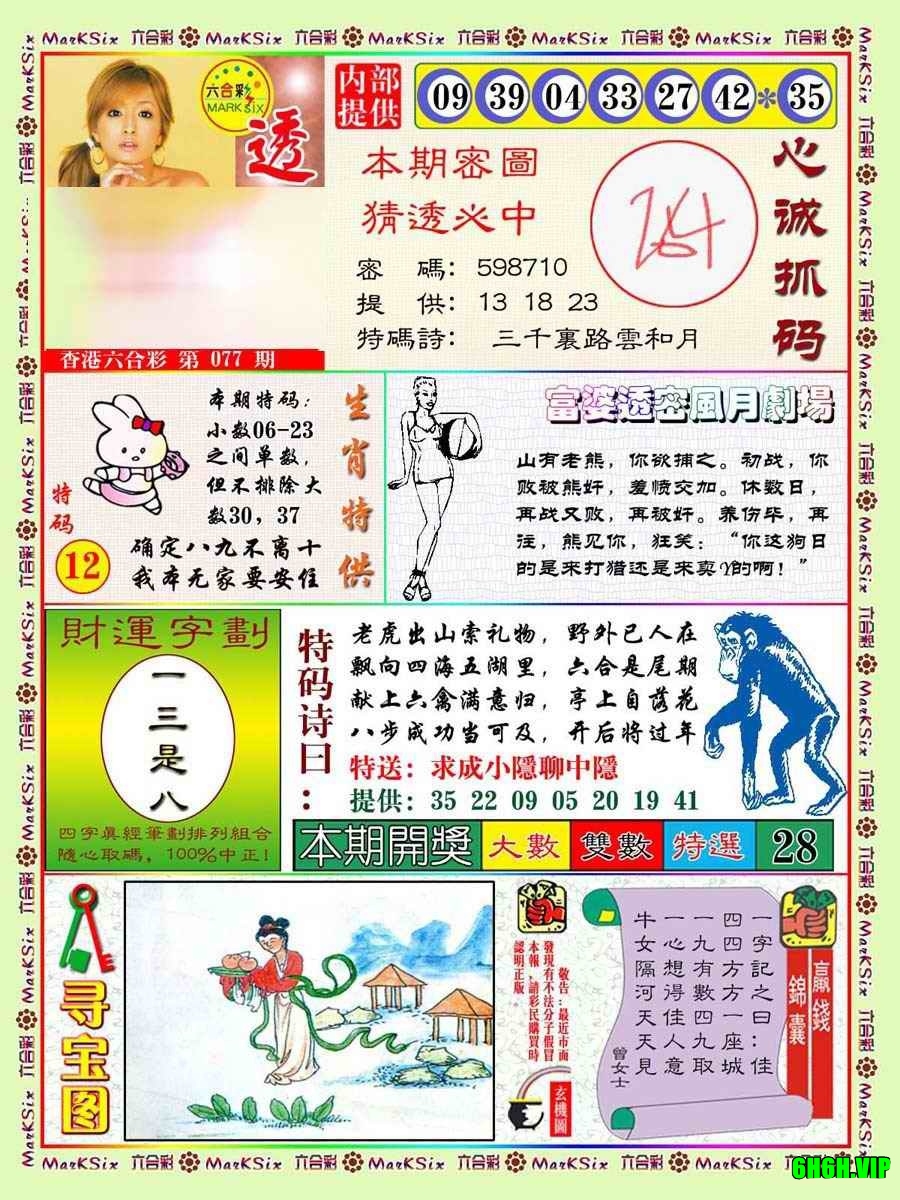 MarKSix 六合彩 MarKSix 六合彩 MarKSix 六合彩 MarKSix 六合彩 MarKSix 六合彩
六合彩
MARK SIX
透
内部
提供
09 39 04 33 27 42 * 35
本期密圖
猜透必中
心诚抓码
密 碼: 598710
提 供: 13 18 23
特碼詩: 三千裏路雲和月
香港六合彩 第 077 期
本期特码:
小数06-23
之间单数,
但不排除大
数30, 37
确定八九不离十
我本无家要安住
特码
12
生肖特供
富婆透密風月劇場
山有老熊，你欲捕之。初战，你
败被熊奸，羞愤交加。休数日，
再战又败，再被奸。养伤毕，再
往，熊见你，狂笑：“你这狗日
的是来打猎还是来卖Y的啊！”
財運字劃
一
三
是
八
四字真經筆劃排列組合
隨心取碼, 100%中正!
特码诗曰:
老虎出山索礼物, 野外已人在
飘向四海五湖里, 六合是尾期
献上六禽满意归, 亭上自落花
八步成功当可及, 开后将过年
特送: 求成小隱聊中隱
提供: 35 22 09 05 20 19 41
本期開獎 大數 雙數 特選 28
寻宝图
敬告:最近市面
發現有不法分子假冒
本報,請彩民購買時
認明正版。
玄機圖
贏錢
錦囊
一字記之曰:佳
四四方方一座城
一九有數四九取
一心想得佳人意
牛女隔河天天見
曾女士
MarKSix 六合彩 MarKSix 六合彩 MarKSix 六合彩 MarKSix 六合彩 MarKSix
6H6H.VIP